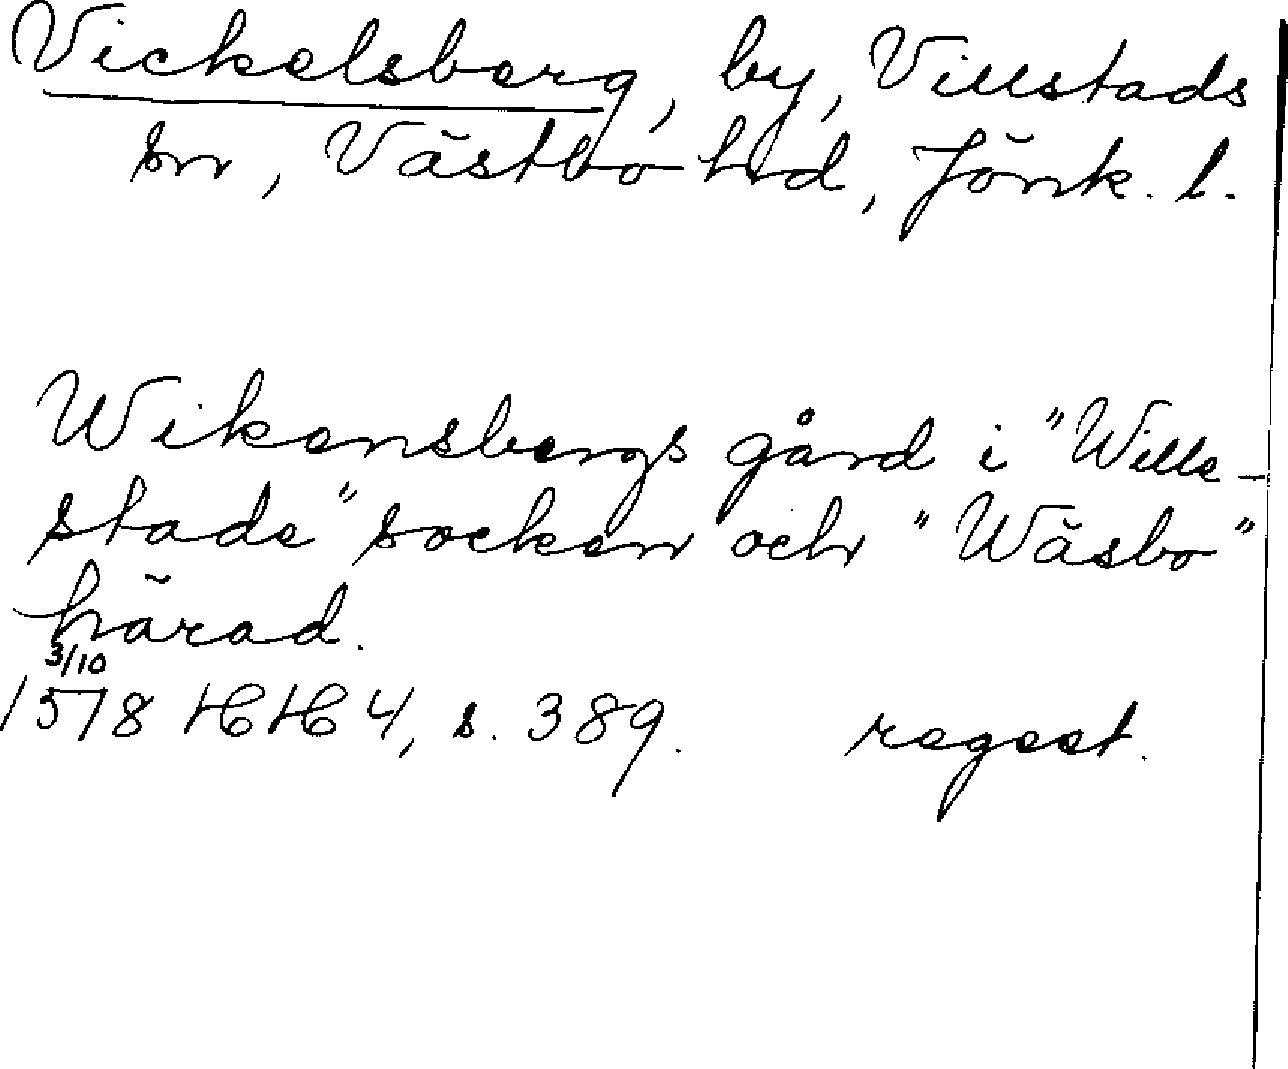 Vickelsberg, by, Villstads
sn, Västbo hd, Jönk. l.
Wikensbergs gård i "Wille-
stade" socken och "Wäsbo"
härad.
3/10
1578 HH 4, s. 389. regest.